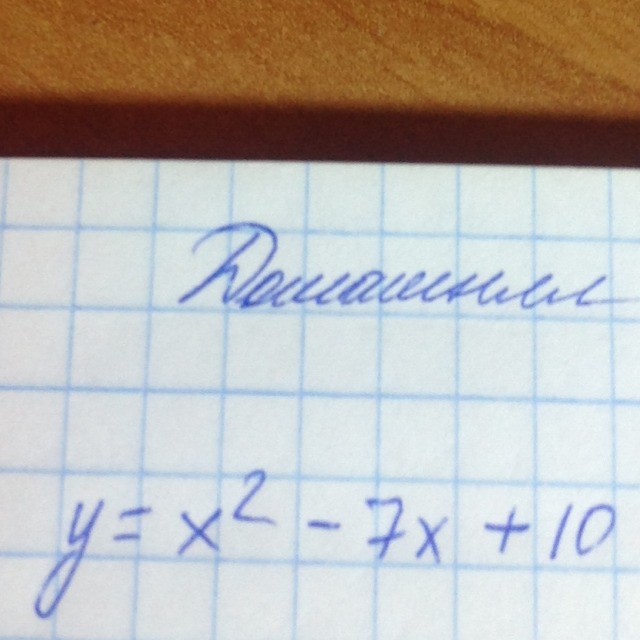 Домашняя
y = x² - 7x + 10